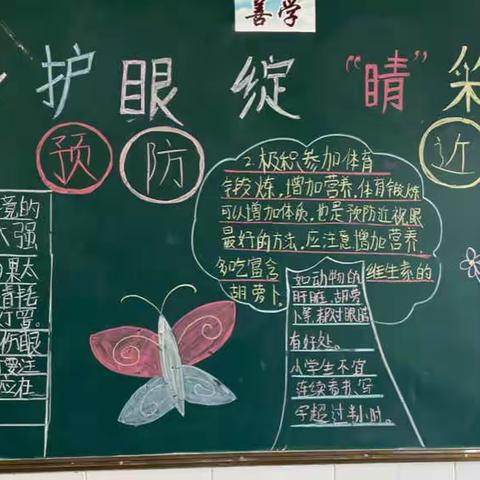 善学
护眼绽“睛”采
预防近
境的
太强
果太
括
行管。
伤眼
要注
应在
2.极积参加体育
锻炼,增加营养,体育锻炼
可以增加体质,也是预防近视眼
最好的方法,应注意增加营养,
多吃富含维生素的
胡萝卜,
如动物的
肝脏、胡萝
卜等,都对眼睛
有好处。
小学生不宜
连续看书、写
字超过半小时。